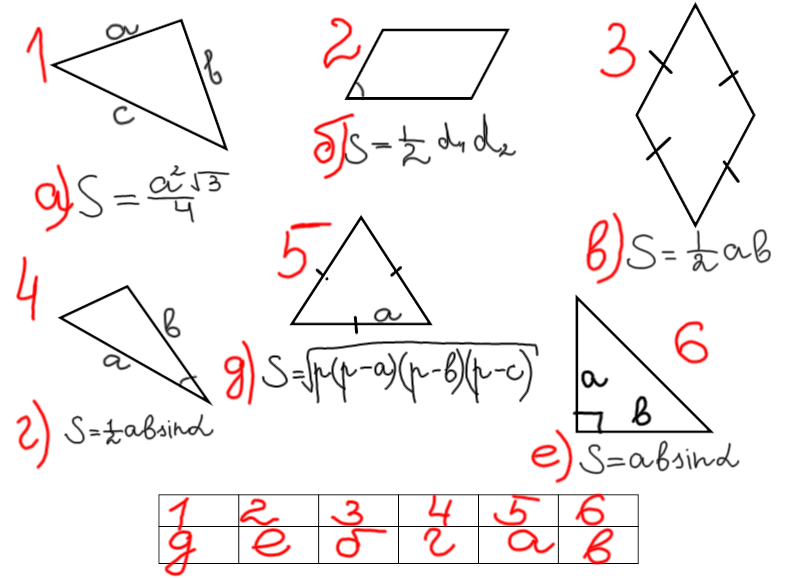 1 a b c
2
3
а) S = a²√3/4
б) S = 1/2 d₁ d₂
в) S = 1/2 ab
4 a b
5 a
6 a b
г) S = 1/2 ab sin α
д) S = √p(p-a)(p-b)(p-c)
е) S = ab sin α
1 2 3 4 5 6
д е б г а в